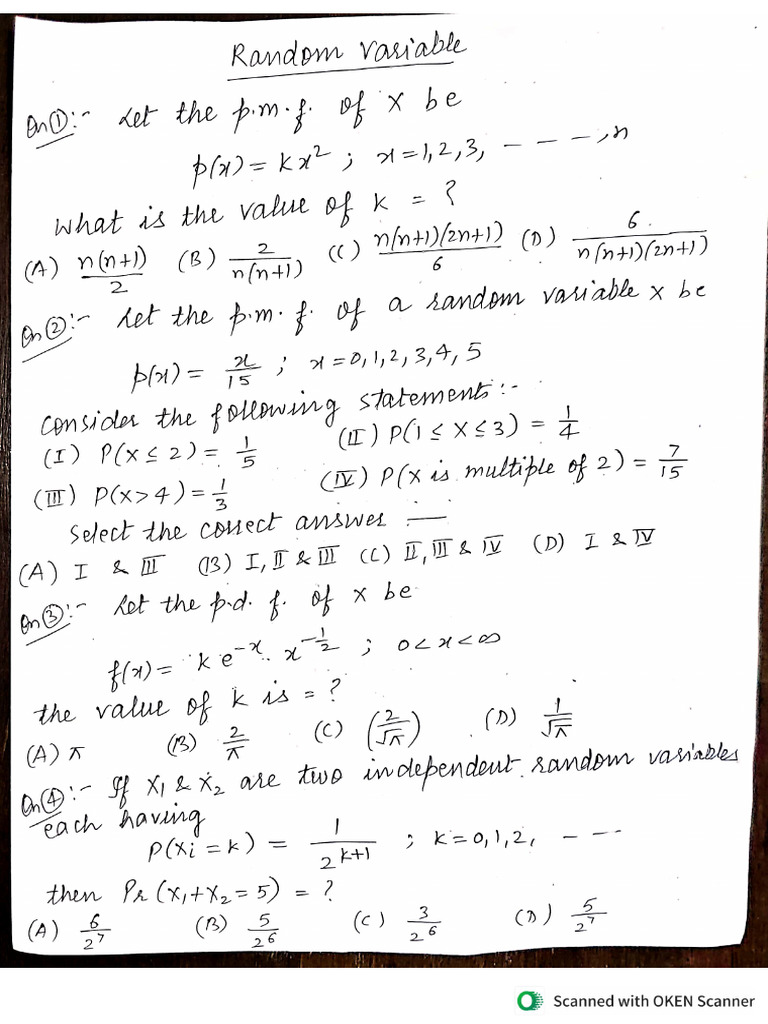 Random Variable
Qn ① :- Let the p.m.f. of X be
p(x) = kx² ; x = 1, 2, 3, - - - -, n
What is the value of k = ?
(A) n(n+1)/2 (B) 2/n(n+1) (C) n(n+1)(2n+1)/6 (D) 6/n(n+1)(2n+1)
Qn ② :- Let the p.m.f. of a random variable X be
p(x) = x/15 ; x = 0, 1, 2, 3, 4, 5
Consider the following statements :-
(I) P(X ≤ 2) = 1/5 (II) P(1 ≤ X ≤ 3) = 1/4
(III) P(X > 4) = 1/3 (IV) P(X is multiple of 2) = 7/15
Select the correct answer —
(A) I & III (B) I, II & III (C) II, III & IV (D) I & IV
Qn ③ :- Let the p.d.f. of X be
f(x) = k e^{-x} . x^{-1/2} ; 0 < x < ∞
the value of k is = ?
(A) π (B) 2/π (C) (2/√π) (D) 1/√π
Qn ④ :- If X₁ & X₂ are two independent random variables
each having
P(Xi = k) = 1/2^{k+1} ; k = 0, 1, 2, - - -
then Pr (X₁ + X₂ = 5) = ?
(A) 6/2⁷ (B) 5/2⁶ (C) 3/2⁶ (D) 5/2⁷
Scanned with OKEN Scanner